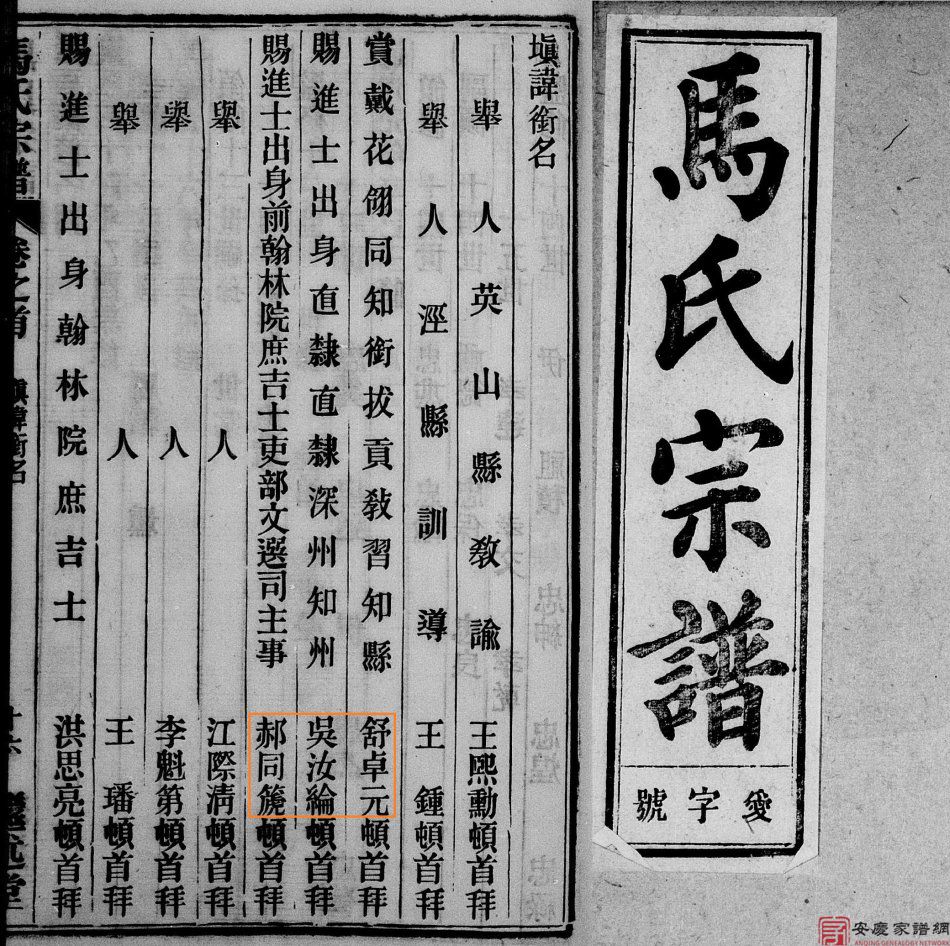 馬氏宗譜
愛字號
塡諱銜名
舉人英山縣敎諭 王熙勳頓首拜
舉人涇縣訓導 王鍾頓首拜
賞戴花翎同知銜拔貢敎習知縣 舒卓元頓首拜
賜進士出身直隸直隸深州知州 吳汝綸頓首拜
賜進士出身前翰林院庶吉士吏部文選司主事 郝同箎頓首拜
舉人 江際清頓首拜
舉人 李魁第頓首拜
舉人 王璠頓首拜
賜進士出身翰林院庶吉士 洪思亮頓首拜
馬氏宗譜 卷之首 塡諱銜名 十六 堂
安慶家譜網
ANQING GENEALOGY NET